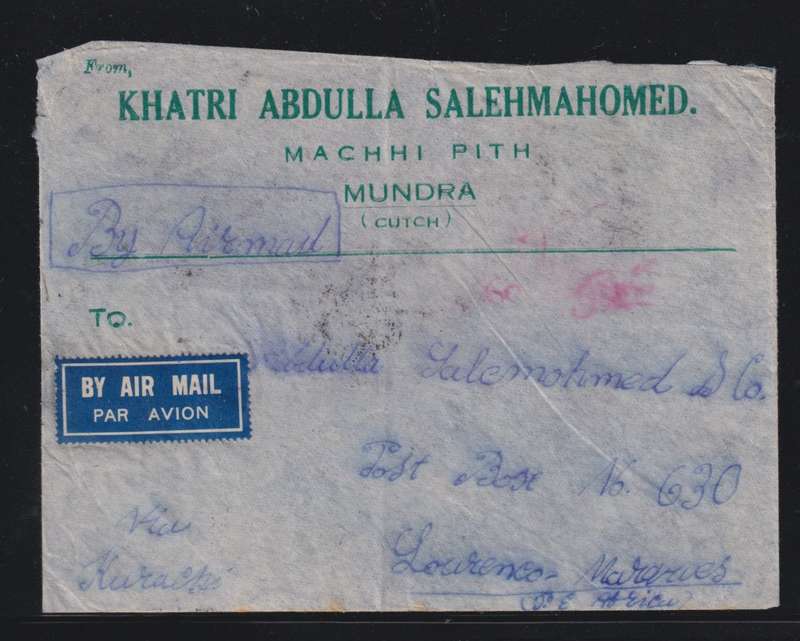 From,
KHATRI ABDULLA SALEHMAHOMED.
MACHHI PITH
MUNDRA
(CUTCH)
By Airmail
TO.
Abdulla Salemohmed & Co.
BY AIR MAIL
PAR AVION
Post Box No. 630
Via
Karachi
Lourenco-Marques
(P. E. Africa)